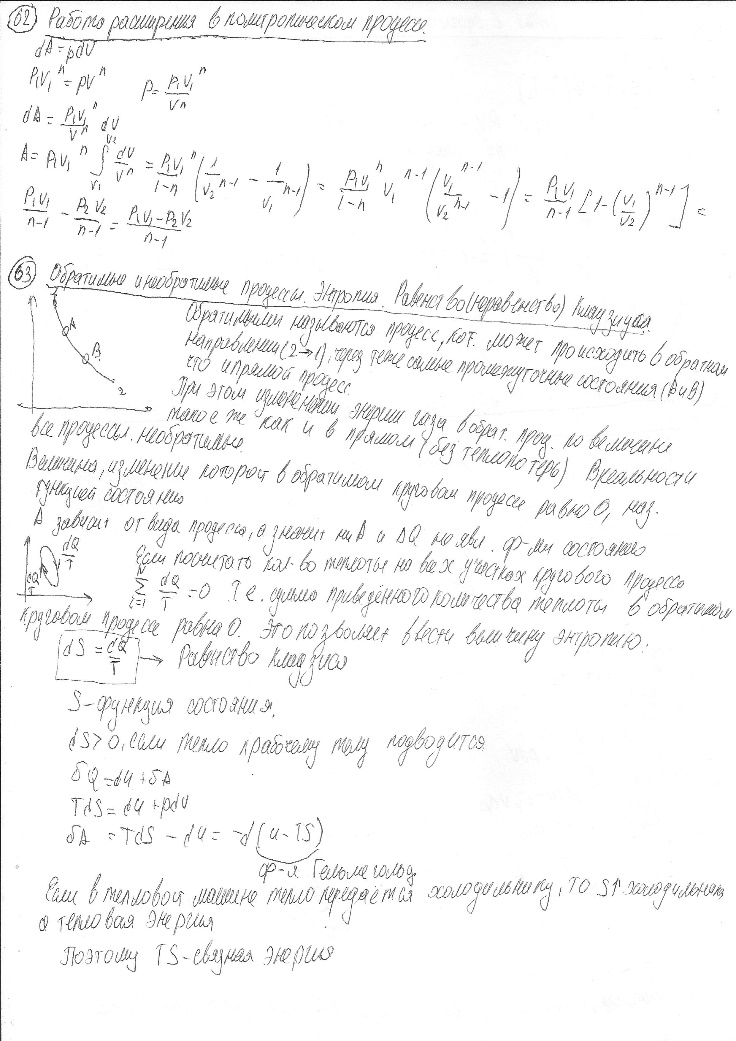 62 Работа расширения в политропическом процессе.
dA=pdV
P₁V₁ⁿ = pVⁿ p= P₁V₁ⁿ/Vⁿ
dA= P₁V₁ⁿ/Vⁿ dV
A= P₁V₁ⁿ ∫_{V₁}^{V₂} dV/Vⁿ = P₁V₁ⁿ/(1-n) (1/V₂ⁿ⁻¹ - 1/V₁ⁿ⁻¹) = P₁V₁ⁿ/(1-n) V₁ⁿ⁻¹ (V₁ⁿ⁻¹/V₂ⁿ⁻¹ -1) = P₁V₁/(n-1) [1-(V₁/V₂)ⁿ⁻¹] =
P₁V₁/(n-1) - P₂V₂/(n-1) = (P₁V₁-P₂V₂)/(n-1)
63 Обратимые и необратимые процессы. Энтропия. Равенство (неравенство) Клаузиуса
1
A
B
2
Обратимыми называются процесс, кот. может происходить в обратном
направлении (2→1), через те же самые промежуточные состояния (A и B)
что и прямой процесс.
При этом изменении энергии газа в обрат. проц. по величине
такое же как и в прямом (без теплопотерь) В реальности
все процессы необратимы.
Величина, изменение которой в обратимом круговом процессе равно 0, наз.
функцией состояния
A зависит от вида процесса, а значит ни A и ΔQ не явл. ф-ми состояния
dQ/T
dQ/T
Если посчитать кол-во теплоты на всех участках кругового процесса
∑_{i=1}^{N} dQ/T =0 Т.е. сумма приведённого количества теплоты в обратимом
круговом процессе равна 0. Это позволяет ввести величину энтропию.
dS = dQ/T → Равенство Клаузиса
S-функция состояния.
dS>0, если тепло к рабочему телу подводится
δQ =dU+δA
TdS=dU+pdV
δA =TdS - dU = -d(U-TS)
ф-я Гельмегольд.
Если в тепловой машине тепло передаётся холодильнику, то S↑ холодильника
а тепловая энергия
Поэтому TS-связная энергия